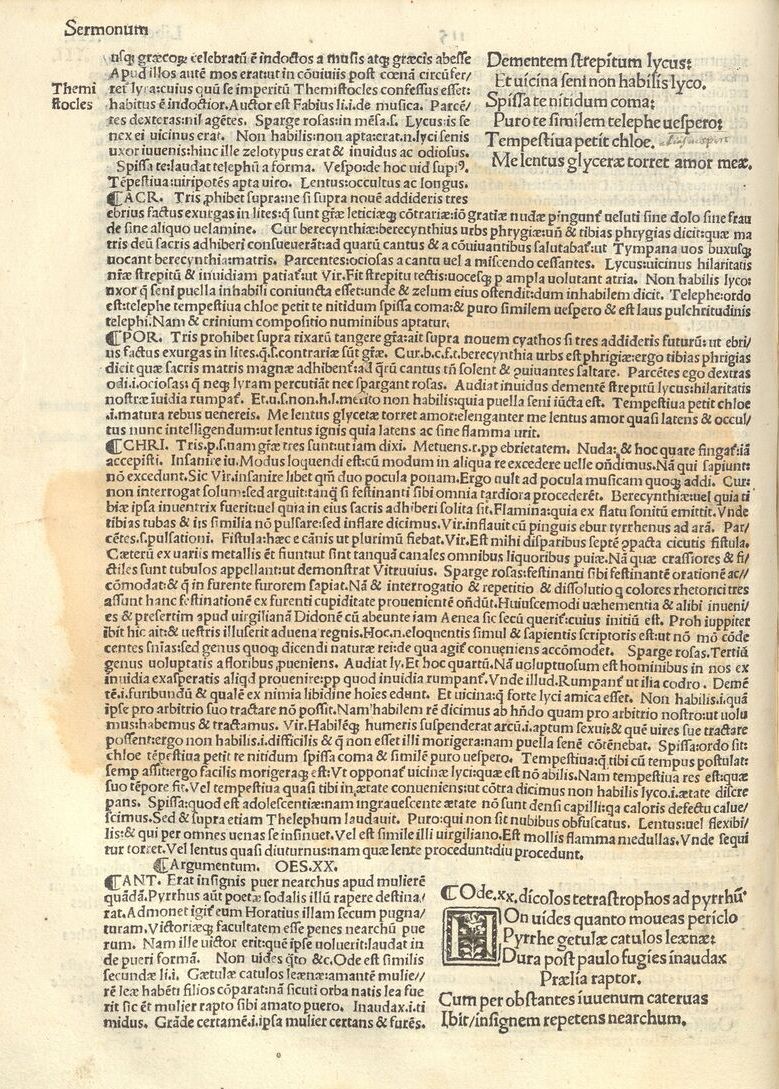 Sermonum
Themi
stocles
usq; græcoq; celebratū ē indoctos a musis atq; græcis abesse
Apud illos autē mos erat: ut in cōuiuiis post cœnā circūfer/
ret lyra: cuius quū se imperitū Themistocles confessus esset:
habitus ē indoctior. Auctor est Fabius li.i. de musica. Parcē/
tes dexteras: nil agētes. Sparge rosas: in mēsa.s. Lycus: is se
nex ei uicinus erat. Non habilis: non apta: erat.n. lyci senis
uxor iuuenis: hinc ille zelotypus erat & inuidus ac odiosus.
Spissa te: laudat telephū a forma. Vespo: de hoc uid supiꝰ.
Tēpestiua: uiripotēs apta uiro. Lentus: occultus ac longus.
Dementem strepitum lycus:
Et uicina seni non habilis lyco.
Spissa te nitidum coma:
Puro te similem telephe uespero:
Tempestiua petit chloe.
Me lentus glyceræ torret amor meæ.
¶ACR. Tris ꝓhibet supra: ne si supra nouē addideris tres
ebrius factus exurgas in lites: q̄ sunt grīæ leticieq; cōtrariæ: iō gratiæ nudæ pingunt̄ ueluti sine dolo sine frau
de sine aliquo uelamine. Cur berecynthiæ: berecynthius urbs phrygiæ: uñ & tibias phrygias dicit: quæ ma
tris deū sacris adhiberi consueuerāt: ad quarū cantus & a cōuiuantibus salutabat̄: ut Tympana uos buxusq;
uocant berecynthia: matris. Parcentes: ociosas a cantu uel a miscendo cessantes. Lycus: uicinus hilaritatis
nr̄æ strepitū & inuidiam patiat̄: ut Vir. Fit strepitu tectis: uocesq; p ampla uolutant atria. Non habilis lyco:
uxor q̄ seni puella inhabili coniuncta esset: unde & zelum eius ostendit: dum inhabilem dicit. Telephe: ordo
est: telephe tempestiua chloe petit te nitidum spissa coma: & puro similem uespero & est laus pulchritudinis
telephi. Nam & crinium compositio numinibus aptatur.
¶POR. Tris prohibet supra rixarū tangere gr̄a: ait supra nouem cyathos si tres addideris futurū: ut ebri/
us factus exurgas in lites.q.s. contrariæ sūt gr̄æ. Cur.b.c.f.t. berecynthia urbs est phrigiæ: ergo tibias phrigias
dicit quæ sacris matris magnæ adhibent̄: ad q̄rū cantus tñ solent & cuiuantes saltare. Parcētes ego dextras
odi.i. ociosas: q̄ neq; lyram percutiāt nec spargant rosas. Audiat inuidus dementē strepitū lycus: hilaritatis
nostræ īuidia rumpat̄. Et.u.s.non.h.l. merito non habilis: quia puella seni iūcta est. Tempestiua petit chloe
.i. matura rebus uenereis. Me lentus glycetæ torret amor: elenganter me lentus amor quasi latens & occul/
tus nunc intelligendum: ut lentus ignis quia latens ac sine flamma urit.
¶CHRI. Tris.p.s. nam græ tres sunt: ut iam dixi. Metuens.r. pp ebrietatem. Nuda: & hoc quare fingat̄: iā
accepisti. Insanire iu. Modus loquendi est: cū modum in aliqua re excedere uelle oñdimus. Nā qui sapiunt:
nō excedunt. Sic Vir. insanire libet qm̄ duo pocula ponam. Ergo uult ad pocula musicam quoq; addi. Cur:
non interrogat solum: sed arguit: tanq̄ si festinanti sibi omnia tardiora procederēt. Berecynthiæ: uel quia ti
biæ ipsa inuentrix fuerit: uel quia in eius sacris adhiberi solita sit. Flamina: quia ex flatu sonitū emittit. Vnde
tibias tubas & iis similia nō pulsare: sed inflare dicimus. Vir. inflauit cū pinguis ebur tyrrhenus ad arā. Par/
cētes.s. pulsationi. Fistula: hæc e cānis ut plurimū fiebat. Vir. Est mihi disparibus septē ꝓpacta cicutis fistula.
Cæterū ex uariis metallis ēt fiunt: ut sint tanquā canales omnibus liquoribus puiæ. Nā quæ crassiores & fi/
ctiles sunt tubulos appellant: ut demonstrat Vitruuius. Sparge rosas: festinanti sibi festinantē orationē ac//
cōmodat: & q̄ in furente furorem sapiat. Nā & interrogatio & repetitio & dissolutio q colores rhetorici tres
assunt hanc festinationē ex furenti cupiditate prouenientē oñdūt. Huiuscemodi uæhementia & alibi inueni/
es & presertim apud uirgilianā Didonē cū abeunte iam Aenea sic secū querit̄: cuius initiū est. Proh iuppiter
ibit hic ait: & uestris illuserit aduena regnis. Hoc.n. eloquentis simul & sapientis scriptoris est: ut nō mō cōde
centes sn̄ias: sed genus quoq; dicendi naturæ rei: de qua agit̄ conueniens accōmodet. Sparge rosas. Tertiū
genus uoluptatis a floribus ꝓueniens. Audiat ly. Et hoc quartū. Nā uoluptuosum est hominibus in nos ex
inuidia exasperatis aliqd prouenire: pp quod inuidia rumpant̄. Vnde illud. Rumpant̄ ut ilia codro. Demē
tē.i. furibundū & qualē ex nimia libidine hoīes edunt. Et uicina: q̄ forte lyci amica esset. Non habilis.i. quā
ipse pro arbitrio suo tractare nō possit. Nam habilem rē dicimus ab hñdo quam pro arbitrio nostro: ut uolu
mus: habemus & tractamus. Vir. Habilēq; humeris suspenderat arcū.i. aptum sexui: & quē uires sue tractare
possent: ergo non habilis.i. difficilis & q̄ non esset illi morigera: nam puella senē cōtēnebat. Spissa: ordo sit:
chloe tēpestiua petit te nitidum spissa coma & similē puro uespero. Tempestiua: q̄.tibi cū tempus postulat:
semp assit: ergo facilis morigeraq; est: Vt opponat̄ uicinæ lyci: quæ est nō abilis. Nam tempestiua res est: quæ
suo tēpore fit. Vel tempestiua quasi tibi in ætate conueniens: ut cōtra dicimus non habilis lyco.i. ætate discre
pans. Spissa: quod est adolescentiæ: nam ingrauescente ætate nō sunt densi capilli: qa caloris defectu calue/
scimus. Sed & supra etiam Thelephum laudauit. Puro: qui non sit nubibus obfuscatus. Lentus: uel flexibi/
lis: & qui per omnes uenas se insinuet. Vel est simile illi uirgiliano. Est mollis flamma medullas. Vnde sequi
tur torret. Vel lentus quasi diuturnus: nam quæ lente procedunt: diu procedunt.
¶Argumentum. OES.XX.
¶ANT. Erat insignis puer nearchus apud mulierē
quādā. Pyrrhus aūt poetæ sodalis illū rapere destina/
rat. Admonet igit̄ eum Horatius illam secum pugna/
turam. Victoriæq; facultatem esse penes nearchū pue
rum. Nam ille uictor erit: quē ipse uoluerit: laudat in
de pueri formā. Non uides q̄to &c. Ode est similis
secundæ li.i. Gætulæ catulos leænæ: amantē mulie//
rē leæ habēti filios cōparat: nā sicuti orba natis lea fue
rit sic ēt mulier rapto sibi amato puero. Inaudax.i. ti
midus. Grāde certamē.i. ipsa mulier certans & furēs.
¶Ode.xx. dicolos tetrastrophos ad pyrrhū.
On uides quanto moueas periclo
Pyrrhe getulæ catulos leænæ:
Dura post paulo fugies inaudax
Prælia raptor.
Cum per obstantes iuuenum cateruas
Ibit/insignem repetens nearchum.